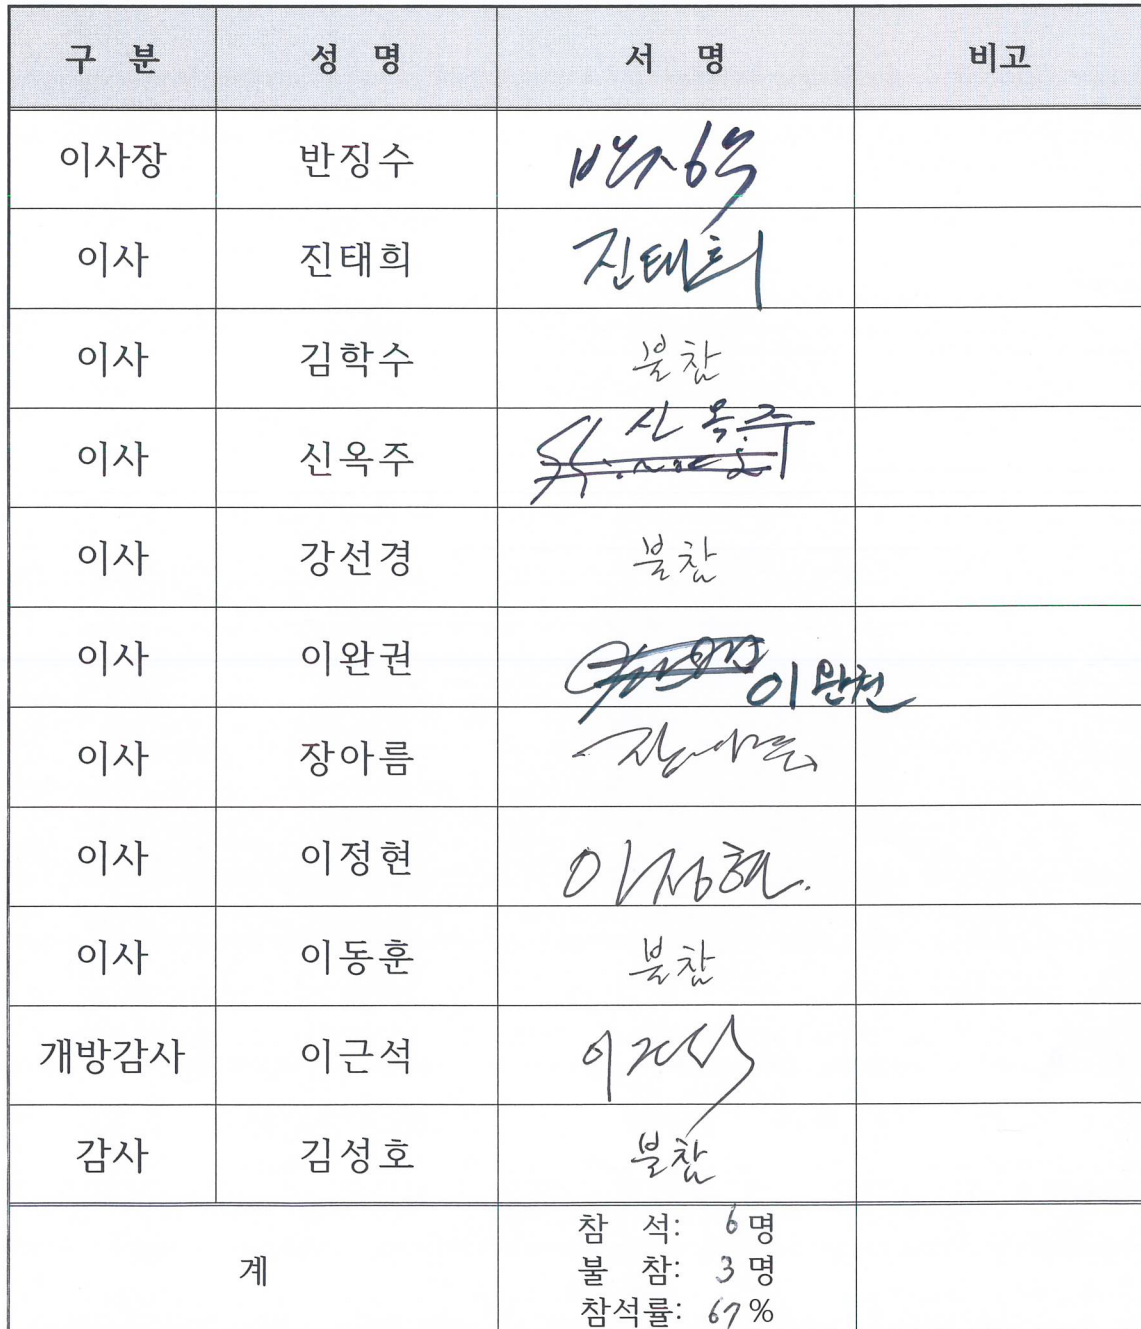 구 분 성 명 서 명 비고
이사장 반징수 반징수
이사 진태희 진태희
이사 김학수 불참
이사 신옥주 신옥주
이사 강선경 불참
이사 이완권 이완권
이사 장아름 장아름
이사 이정현 이정현
이사 이동훈 불참
개방감사 이근석 이근석
감사 김성호 불참
계 참 석: 6명
불 참: 3명
참석률: 67%